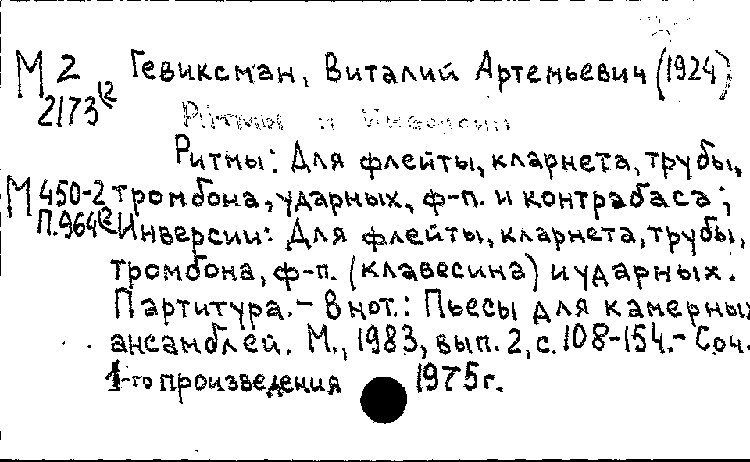 М 2 Гевиксман, Виталий Артемьевич (1924)
2173
Ритмы и Инверсии
Ритмы: Для флейты, кларнета, трубы,
М 450-2 тромбона, ударных, ф-п. и контрабаса;
П.964 Инверсии: Для флейты, кларнета, трубы,
тромбона, ф-п. (клавесина) и ударных.
Партитура. - В нот.: Пьесы для камерных
ансамблей. М., 1983, вып. 2, с. 108-154. - Соч.
1-го произведения 1975 г.